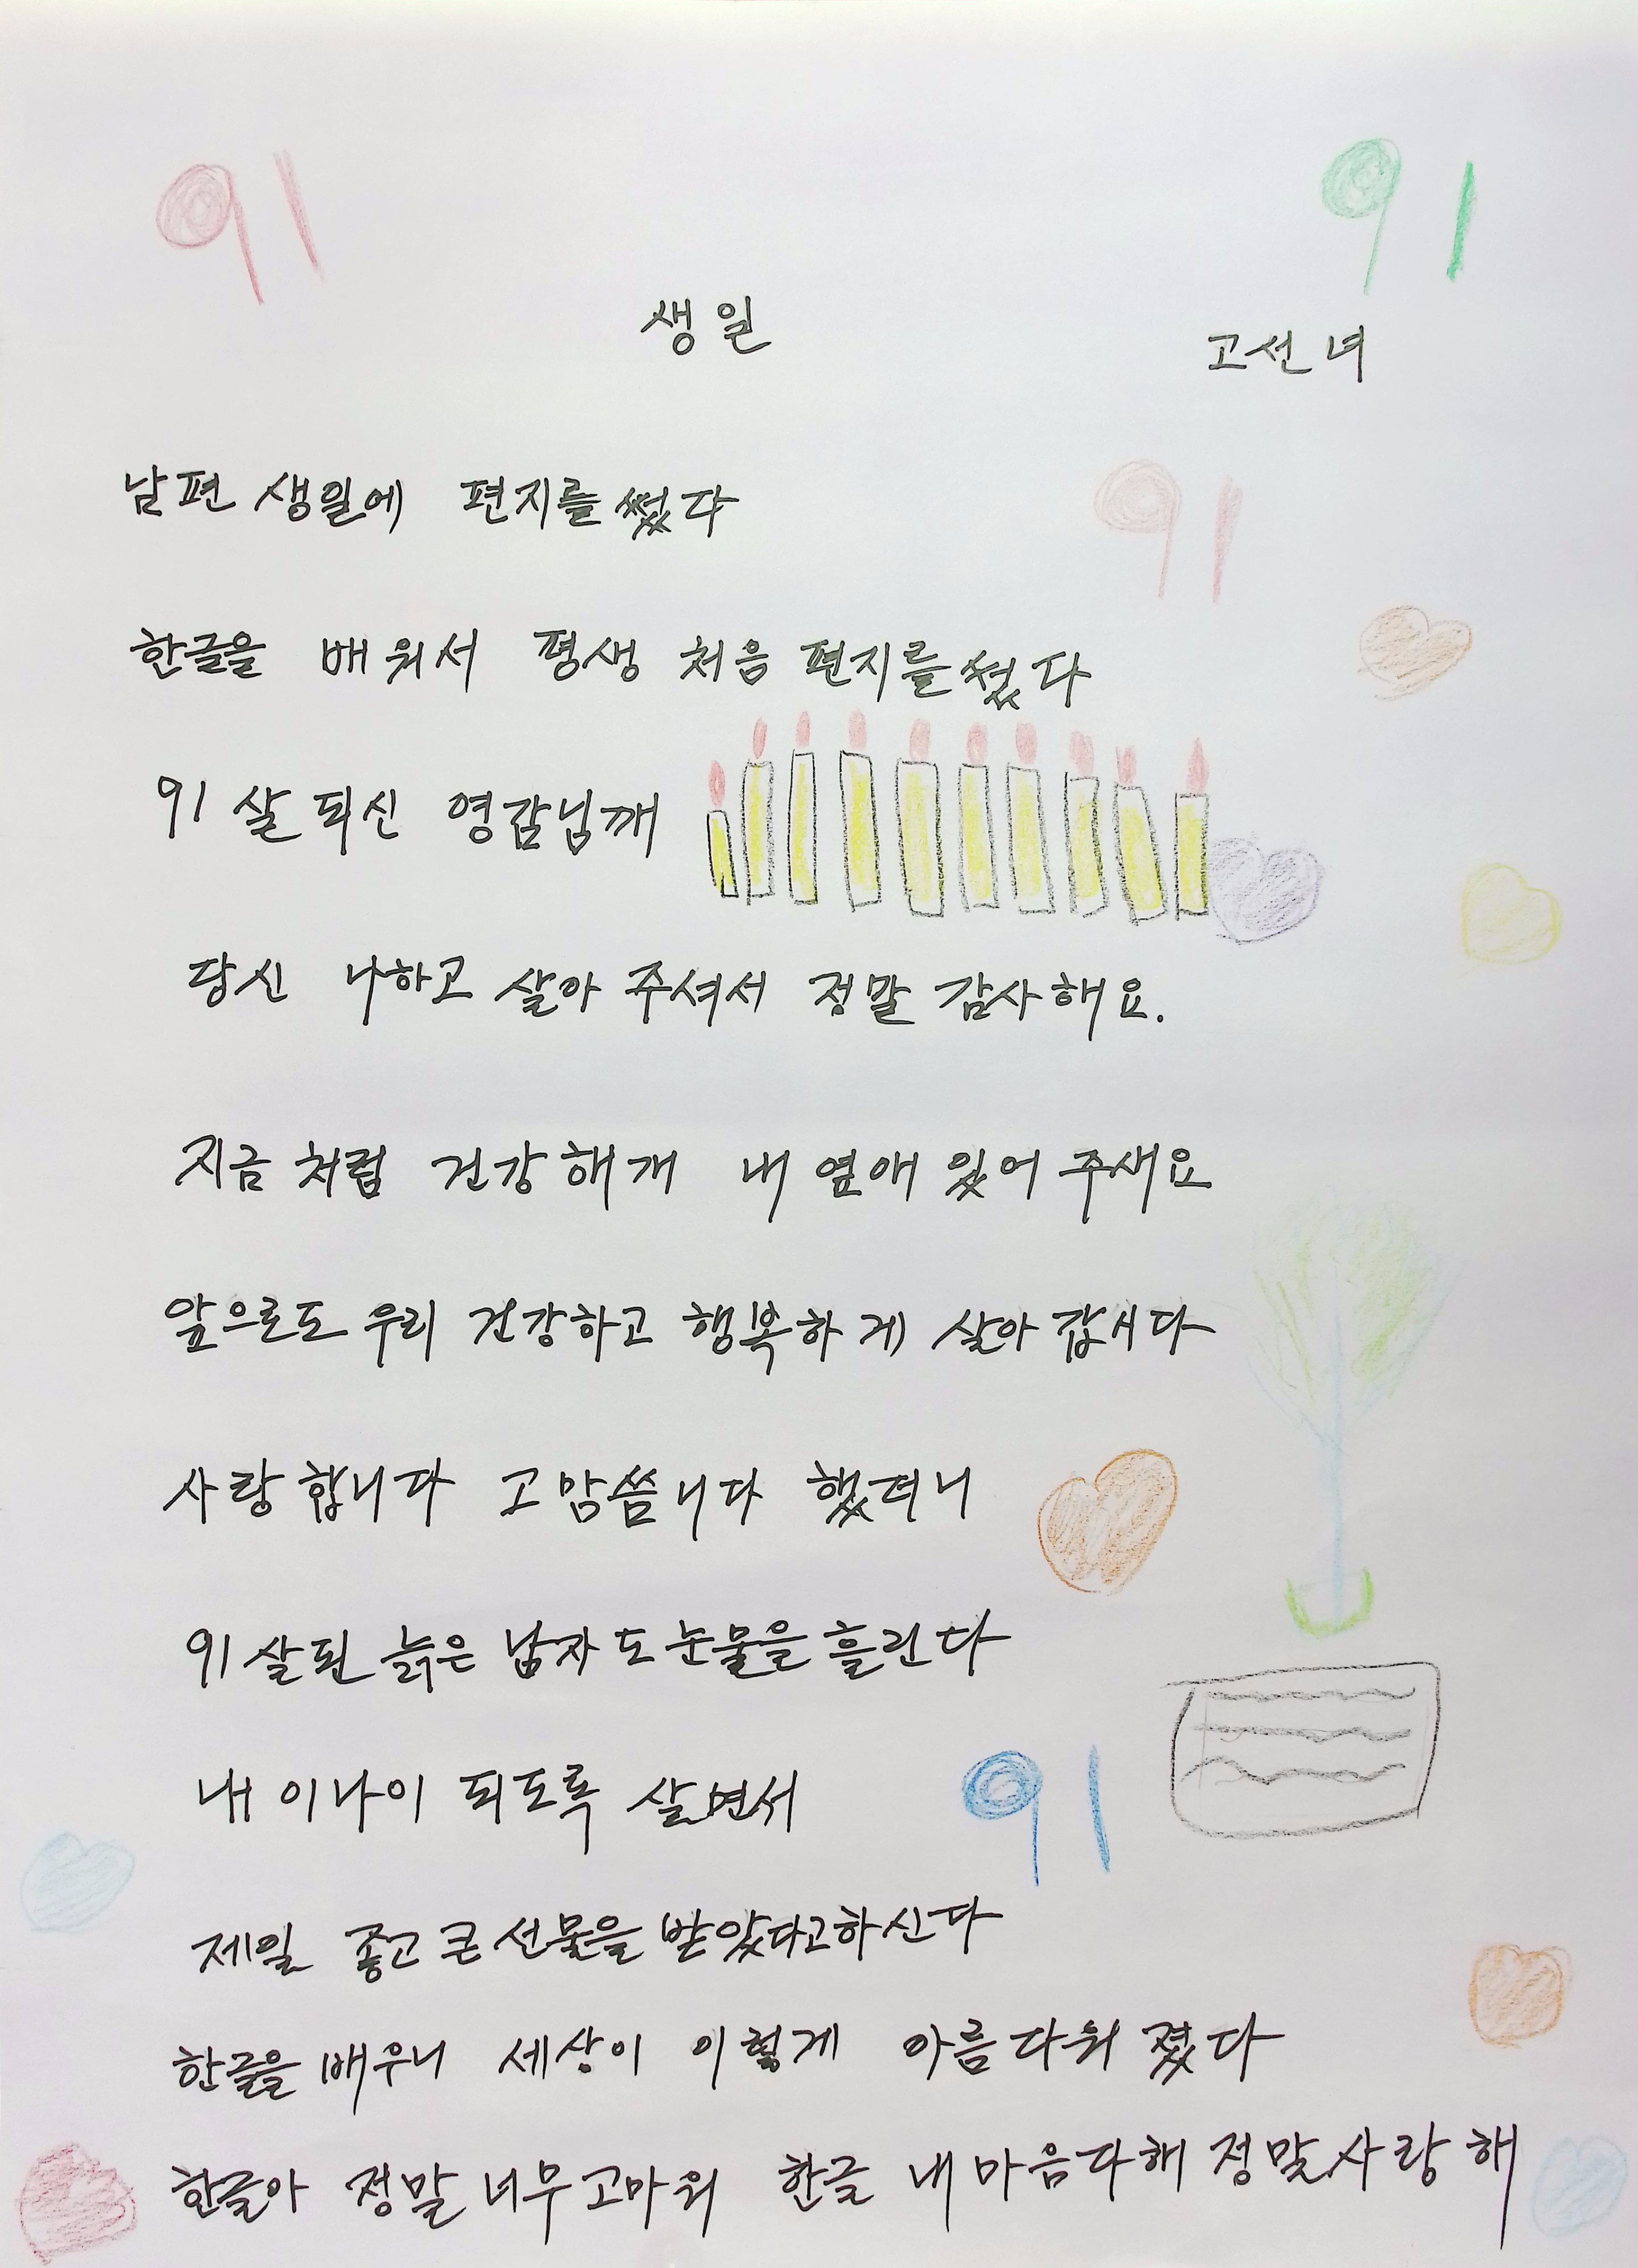 91
91
생일
고선녀
남편 생일에 편지를 썼다
91
한글을 배워서 평생 처음 편지를 썼다
91살 되신 영감님깨
당신 나하고 살아 주셔서 정말 감사해요.
지금 처럼 건강해개 내 옆애 있어 주새요
앞으로도 우리 건강하고 행복하게 살아 갑시다
사랑합니다 고맘씀니다 했더니
91살된 늙은 남자도 눈물을 흘린다
내 이나이 되도록 살면서
91
제일 좋고 큰 선물을 받았다고하신다
한글을 배우니 세상이 이렇게 아름다워 졌다
한글아 정말 너무 고마워 한글 내 마음다해 정말 사랑해